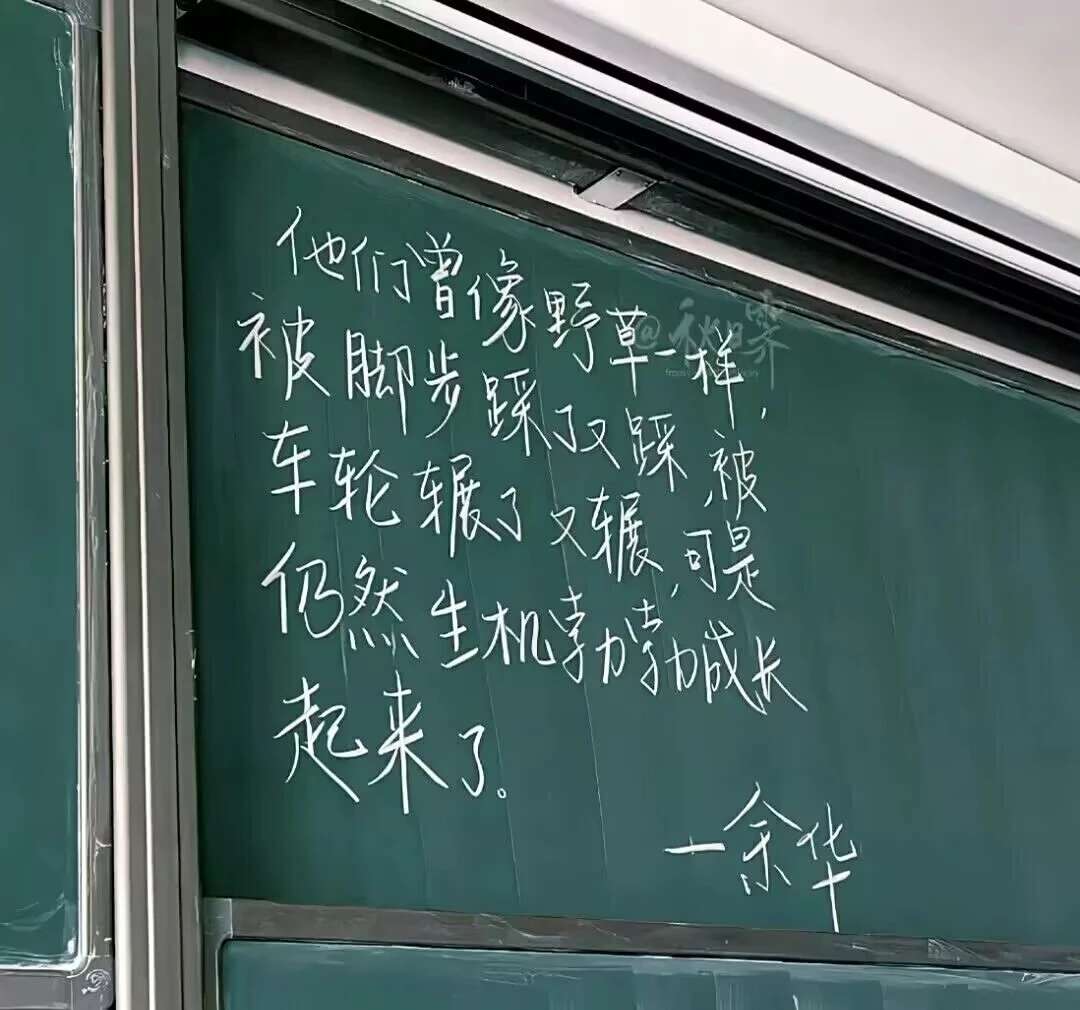 他们曾像野草一样，
被脚步踩了又踩，被
车轮辗了又辗，可是
仍然生机勃勃成长
起来了。
—余华
@秋日霁